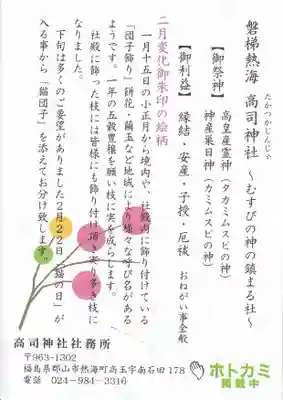 磐梯熱海 高司神社 ～むすびの神の鎮まる社～
たかつかじんじゃ
【御祭神】 高皇産霊神（タカミムスビの神）
神産巣日神（カミムスビの神）
【御利益】 縁結・安産・子授・厄祓 おねがい事全般
二月変化御朱印の絵柄
一月十五日の小正月から境内や、社殿内に飾り付けている
「団子飾り」餅花・繭玉など地域により様々な呼び名がある
ようです。一年の五穀豊穣を願い枝に実を成らします。
社殿に飾った枝には皆様にも飾り付け頂き実り多き枝に
なりました。
下旬は多くのご要望がありました２月２２日「猫の日」が
入る事から「猫団子」を添えてお分け致します。
高司神社社務所
〒963-1302
福島県郡山市熱海町高玉字南石田178
電話 024-984-3316
ホトカミ
掲載中